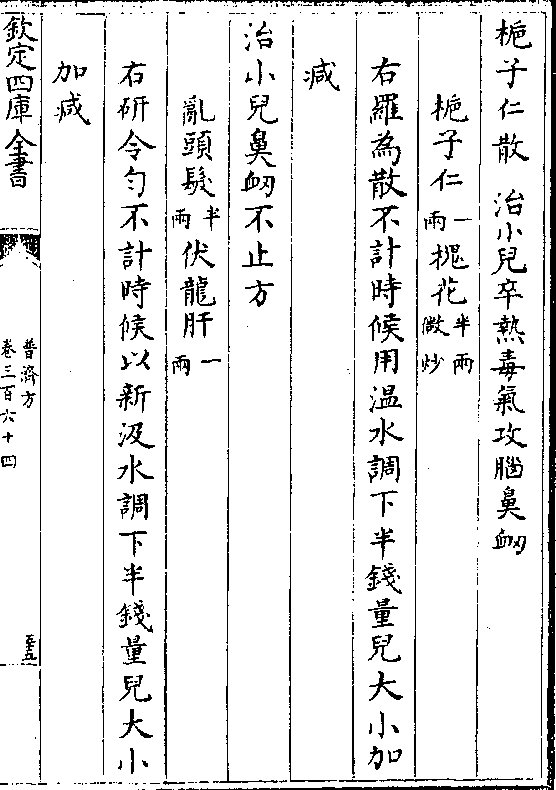 梔子仁散 治小兒卒熱毒氣攻腦鼻衂
梔子仁一兩 槐花半兩微炒
右羅為散不計時候用温水調下半錢量兒大小加
減
治小兒鼻衂不止方
亂頭髮半兩 伏龍肝一兩
右研令勻不計時候以新汲水調下半錢量兒大小
加减
欽定四庫全書
普濟方
卷三百六十四